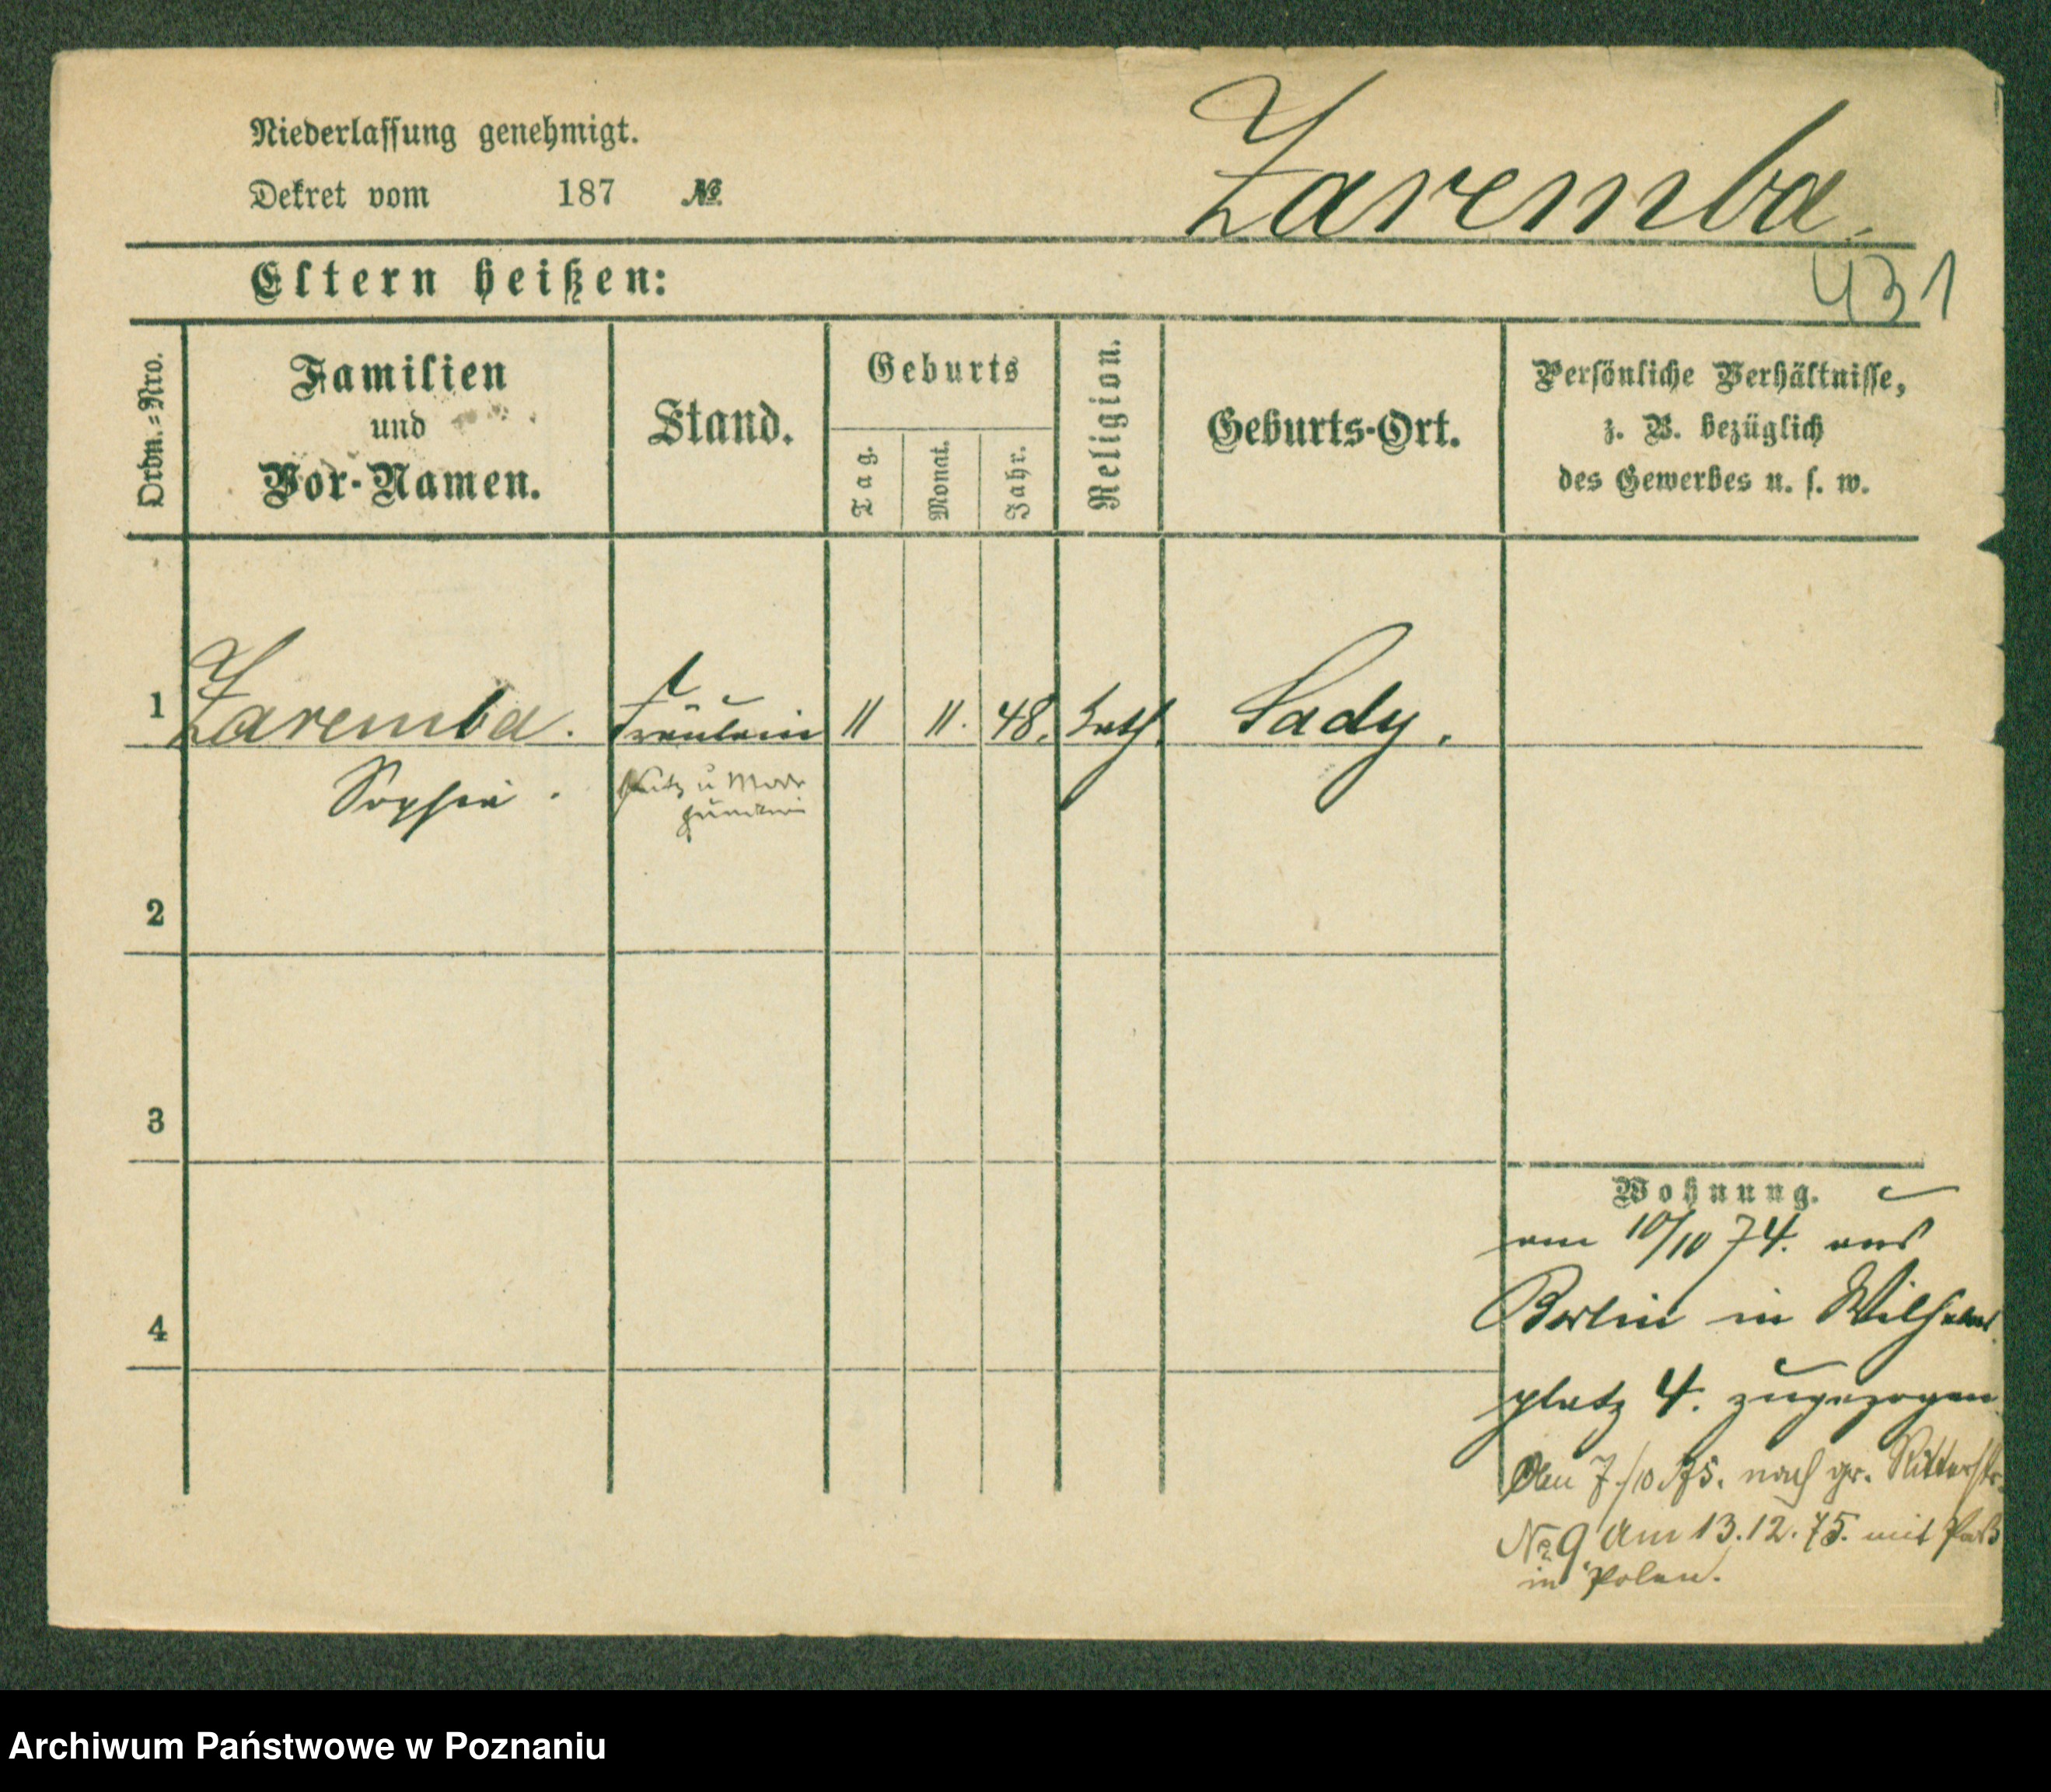 Niederlassung genehmigt.
Dekret vom 187 №
Zaremba.
Eltern heißen:
431
Ordn.=Nro.
Familien
und
Vor-Namen.
Stand.
Geburts
Tag.
Monat.
Jahr.
Religion.
Geburts-Ort.
Persönliche Verhältnisse,
z. B. bezüglich
des Gewerbes u. s. w.
1 Zaremba. Fräulein 11 11. 48. kath. Sady.
Sophie. Putz u
2
3
4
Wohnung.
am 10/10 74. aus
Berlin in Wilhelms
platz 4. zugezogen
Am 7./10.75. nach gr. Ritterstr.
No 9 Am 13.12.75. mit Paß
in Polen.
Archiwum Państwowe w Poznaniu